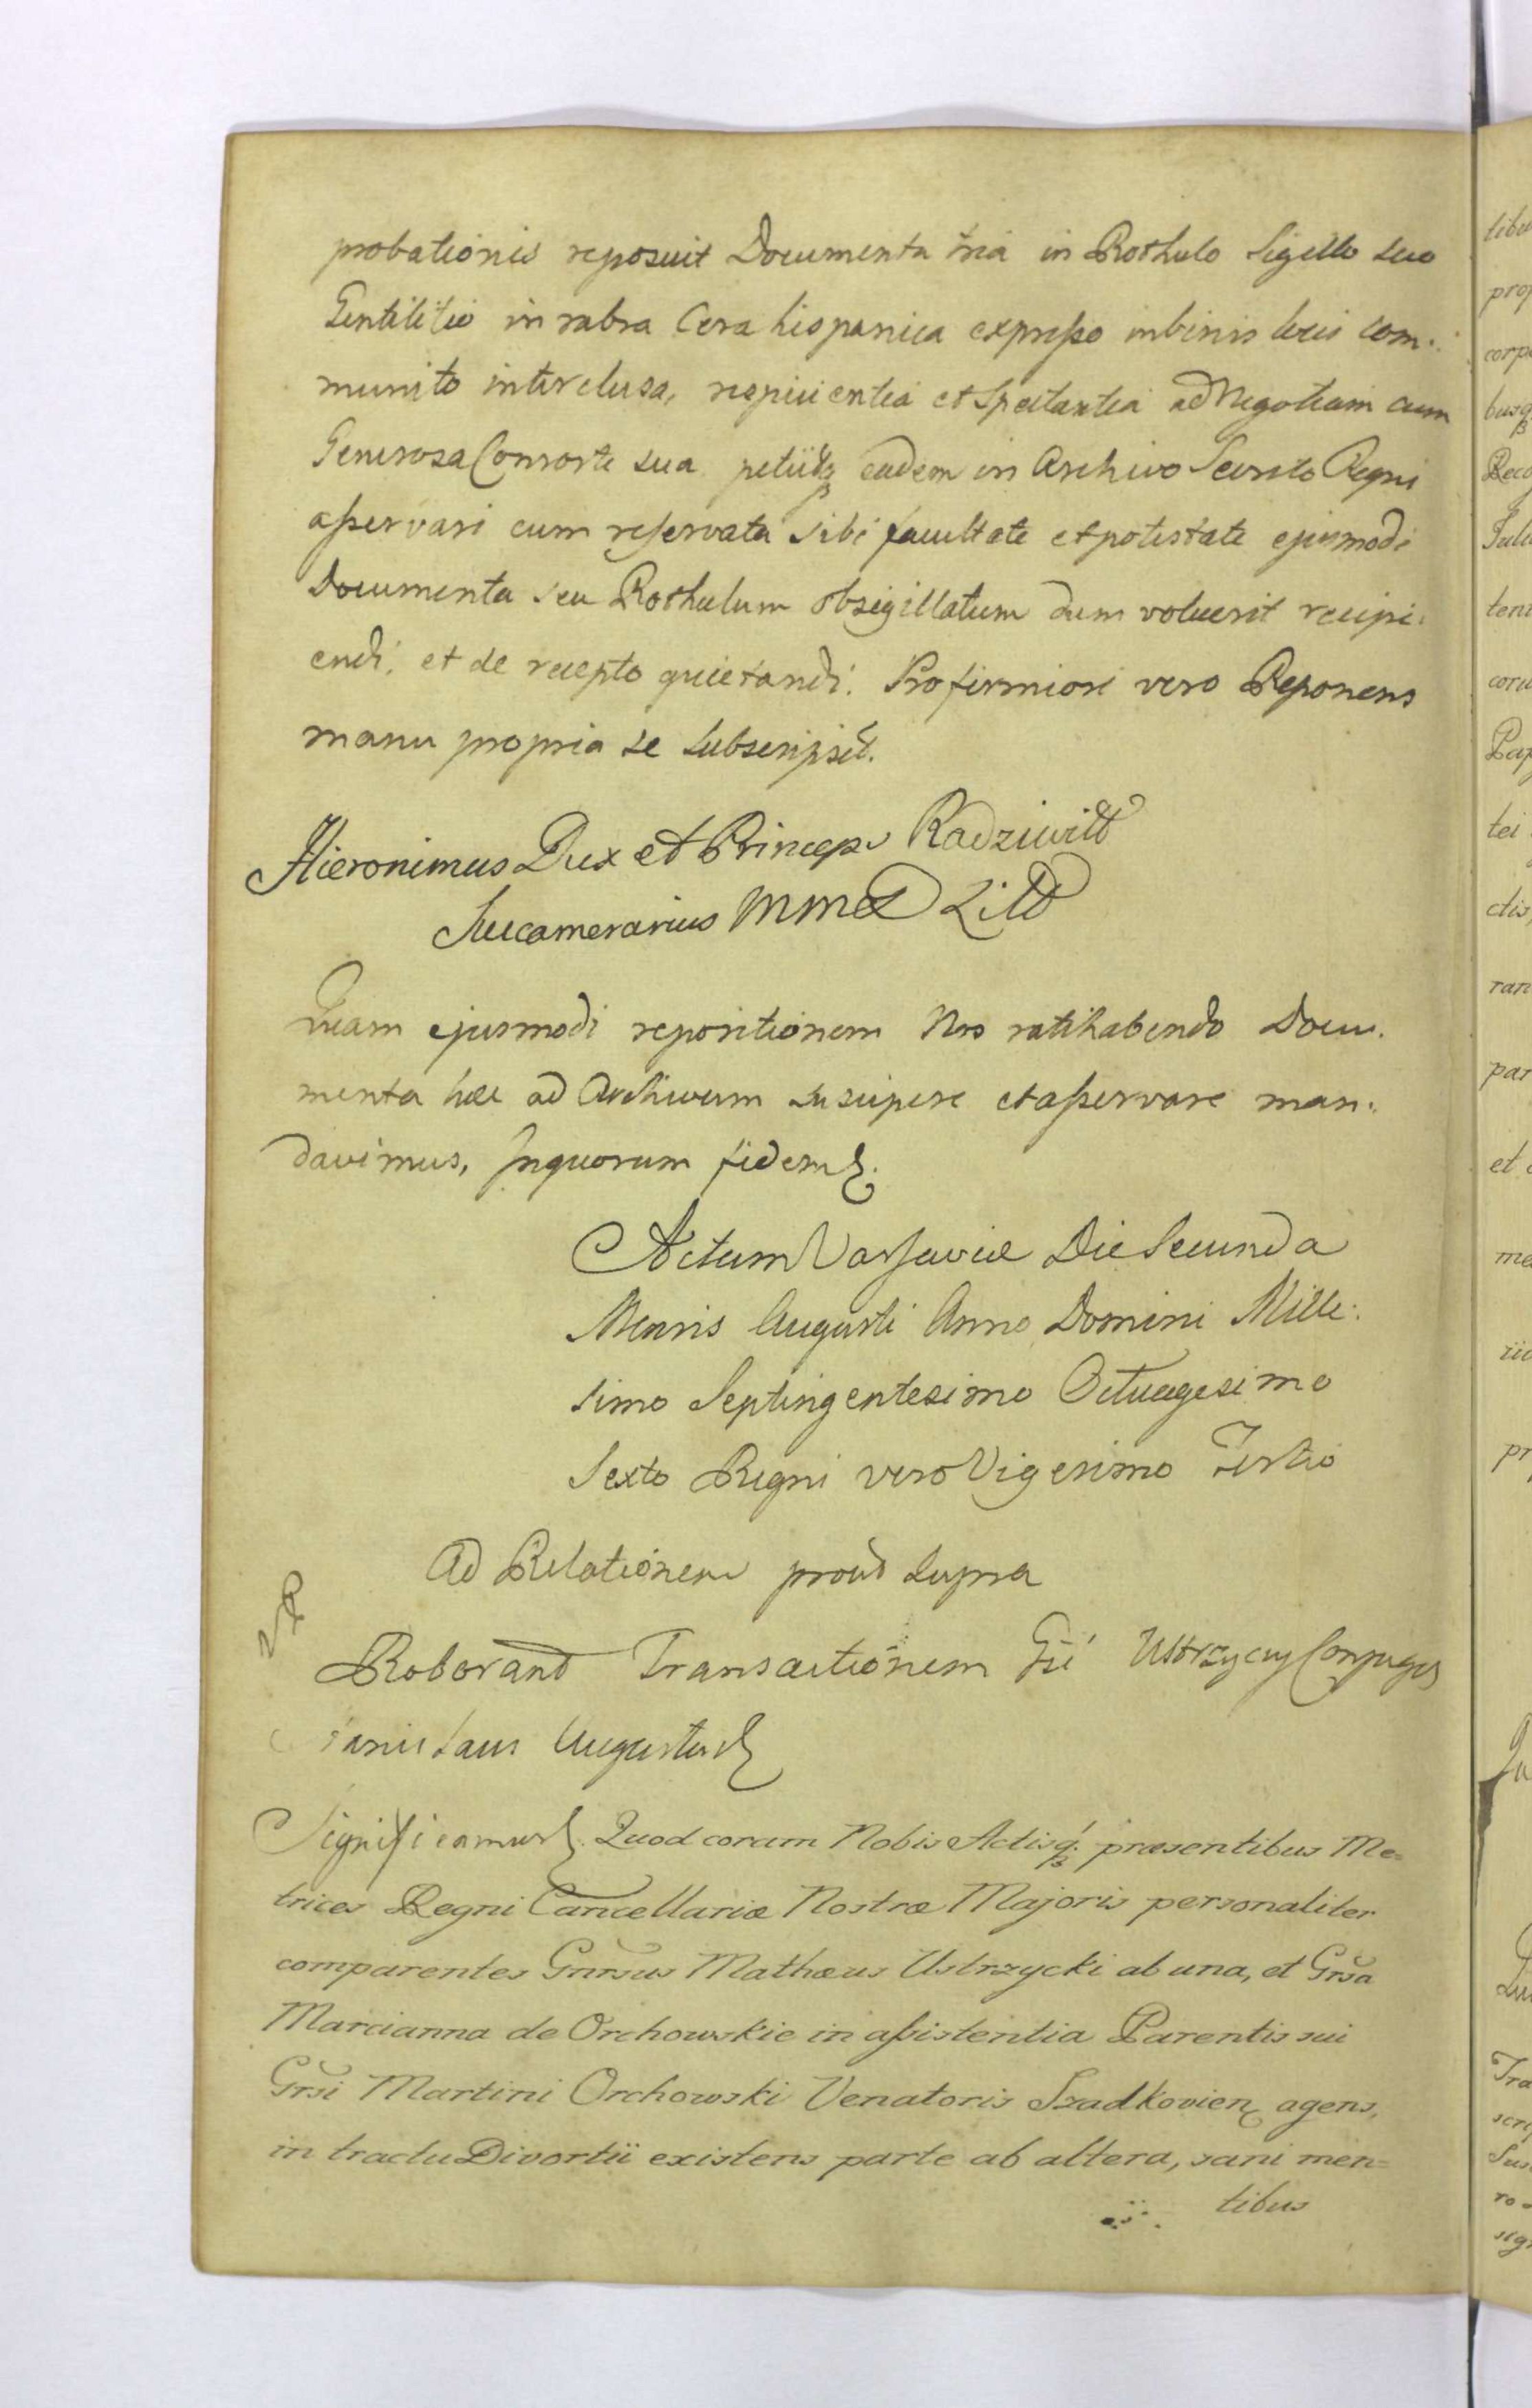 probationis reposuit Documenta tria in Rothulo Sigillo suo
Gentilitio in rubra Cera hispanica expresso in binis locis com-
munito interclusa, respicientia et Spectantia ad Negotium cum
Generosa Consorte sua petiitq; eadem in Archivo Secreto Regni
asservari cum reservata sibi facultate et potestate ejusmodi
Documenta seu Rothulum obsigillatum dum voluerit recipi-
endi, et de recepto quietandi. Pro firmiori vero Reponens
manu propria se subscripsit.
Hieronimus Dux et Princeps Radziwiłł
Succamerarius MMDLitt
Quam ejusmodi repositionem Nos ratihabendo Docu-
menta hæc ad Archivum suscipere et asservare man-
davimus, In quorum fidem
Actum Varsaviæ Die Secunda
Mensis Augusti Anno Domini Mille-
simo Septingentesimo Octuagesimo
Sexto Regni vero Vigesimo Tertio
Ad Relationem prout supra
Roborant Transactionem Gsi Ustrzyccy Conjuges
Stanislaus Augustus
Significamus Quod coram Nobis Actisq; præsentibus Me-
trices Regni Cancellariæ Nostræ Majoris personaliter
comparentes Gnrsus Mathæus Ustrzycki ab una, et Grsa
Marcianna de Orchowskie in assistentia Parentis sui
Grsi Martini Orchowski Venatoris Szadkovien agens,
in tractu Divortii existens parte ab altera, sani men=
tibus